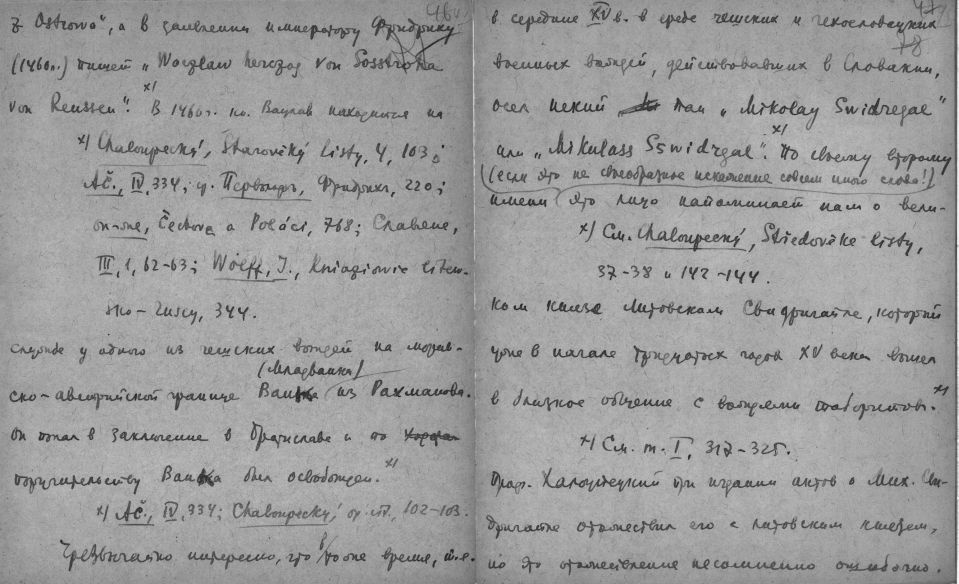 z Ostrowa", а в заявлении императору Фридриху
(1460г.) пишет „Waczlaw herczog von Sosstroha
von Reussen".*) В 1460г. кн. Вацлав находился на
*) Chaloupecký, Středověký listy, 4, 103;
AČ., IV, 334; ср. Первольф, Фридрих, 220;
он-же, Čechové a Poláci, 768; Славяне,
III, 1, 62-63; Wolff, J., Kniaziowie litew-
sko-ruscy, 344.
службе у одного из чешских вождей на морав-
(Младванка)
ско-австрийской границе Ванка из Рахманова.
Он попал в заключение в Братиславе и по
поручительству Ванка был освобожден.*)
*) AČ., IV, 334; Chaloupecký, op. cit., 102-103.
Чрезвычайно интересно, что в то же время, т.е.
464
в середине XV в. в среде чешских и чехословацких
48
военных вождей, действовавших в Словакии,
осел некий пан „Mikolay Swidregal"
или „Mikulass Sswidrgal".*) По своему второму
(если это не своеобразное искажение совсем иного слова!)
имени это лицо напоминает нам о вели-
*) См. Chaloupecký, Středověké listy,
37-38 и 142-144.
ком князе литовском Свидригайле, который
уже в начале тридцатых годов XV века вошел
в близкое общение с вождями таборитов.*)
*) См. т. I, 317-325.
Проф. Халоупецкий при издании актов о Мих. Сви-
дригайле отожествил его с литовским князем,
но это отожествление несомненно ошибочно.